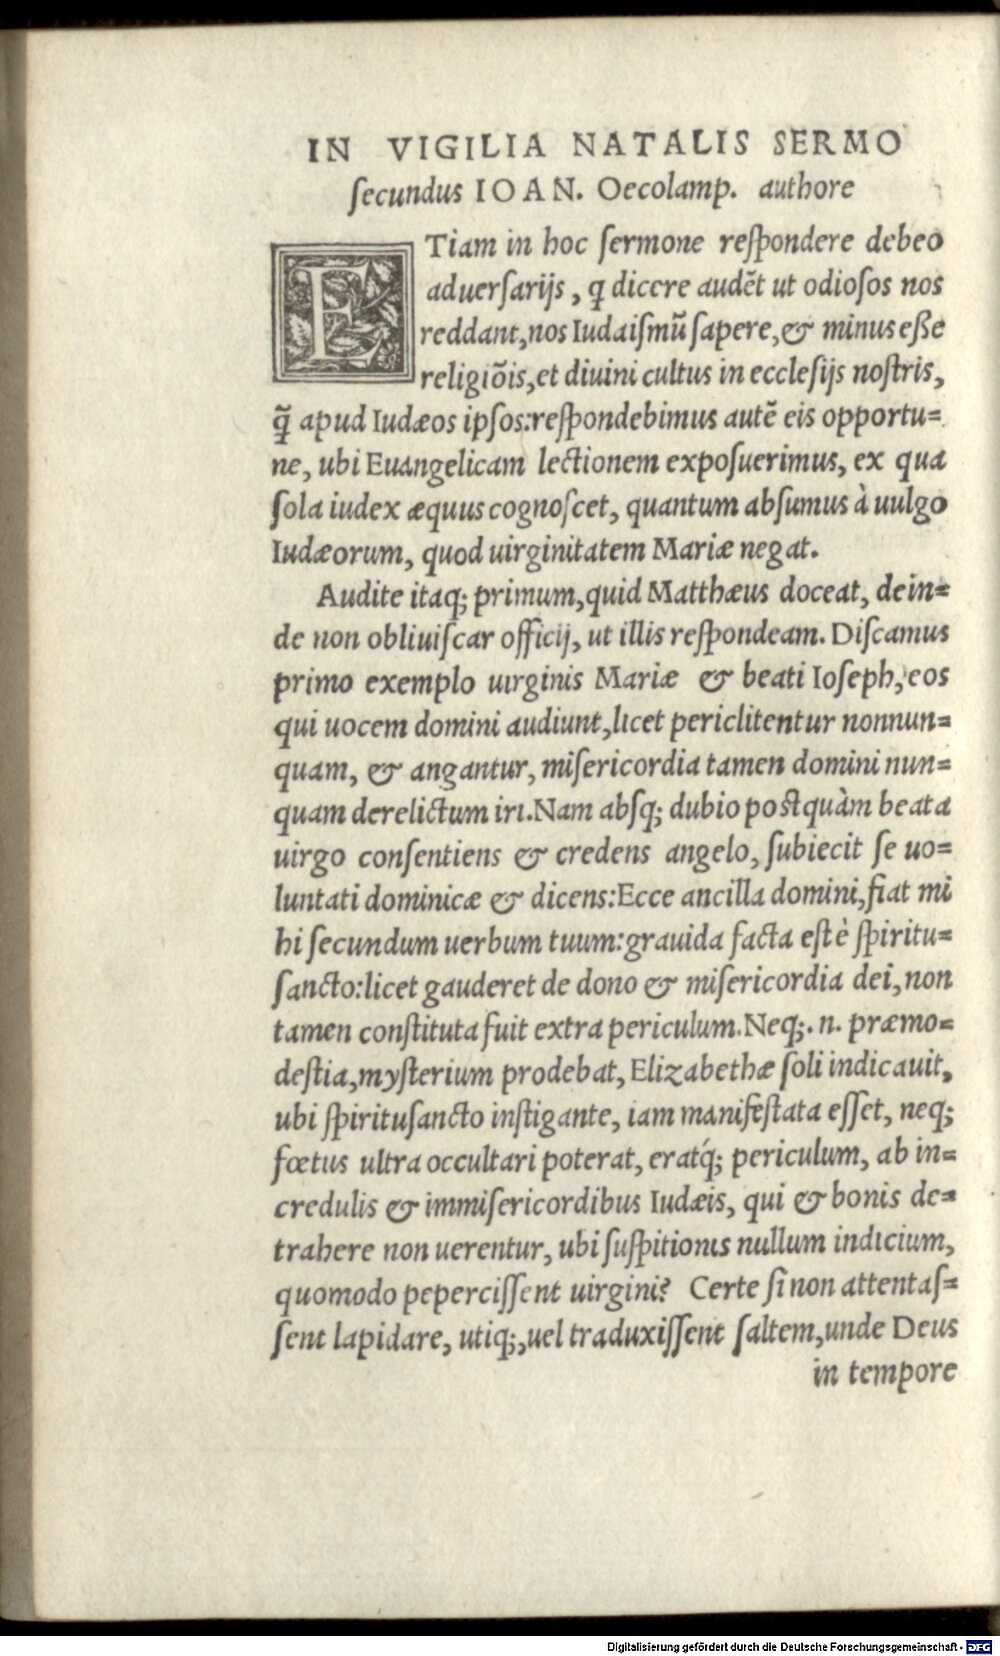 IN VIGILIA NATALIS SERMO
secundus IOAN. Oecolamp. authore
ETiam in hoc sermone respondere debeo
aduersarijs, q̨ dicere audẽt ut odiosos nos
reddant, nos Iudaismũ sapere, & minus esse
religiõis, et diuini cultus in ecclesijs nostris,
q̃ apud Iudæos ipsos: respondebimus autẽ eis opportu=
ne, ubi Euangelicam lectionem exposuerimus, ex qua
sola iudex æquus cognoscet, quantum absumus à uulgo
Iudæorum, quod uirginitatem Mariæ negat.
Audite itaq; primum, quid Matthæus doceat, dein=
de non obliuiscar officij, ut illis respondeam. Discamus
primo exemplo uirginis Mariæ & beati Ioseph, eos
qui uocem domini audiunt, licet periclitentur nonnun=
quam, & angantur, misericordia tamen domini nun=
quam derelictum iri. Nam absq; dubio postquàm beata
uirgo consentiens & credens angelo, subiecit se uo=
luntati dominicæ & dicens: Ecce ancilla domini, fiat mi
hi secundum uerbum tuum: grauida facta est è spiritu=
sancto: licet gauderet de dono & misericordia dei, non
tamen constituta fuit extra periculum. Neq;. n. præmo=
destia, mysterium prodebat, Elizabethæ soli indicauit,
ubi spiritusancto instigante, iam manifestata esset, neq;
fœtus ultra occultari poterat, eratq́; periculum, ab in=
credulis & immisericordibus Iudæis, qui & bonis de=
trahere non uerentur, ubi suspitionis nullum indicium,
quomodo pepercissent uirgini? Certe si non attentas=
sent lapidare, utiq;, uel traduxissent saltem, unde Deus
in tempore
Digitalisierung gefördert durch die Deutsche Forschungsgemeinschaft - DFG